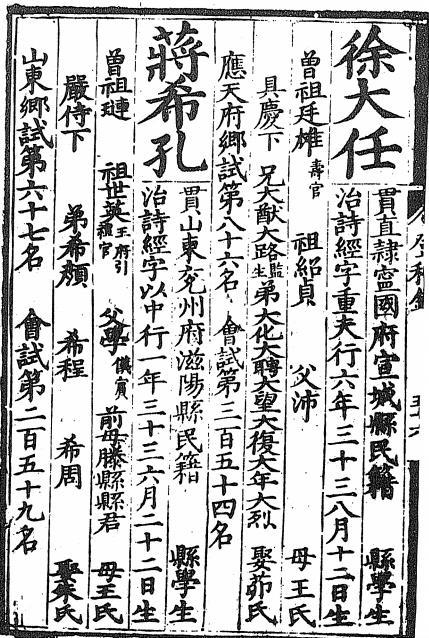 徐大任
貫直隸寧國府宣城縣民籍 縣學生
治詩經字重夫行六年三十三八月十二日生
曾祖廷雄壽官 祖紹貞 父沛 母王氏
具慶下 兄大猷大路監生弟大化大聘大望大復大年大烈 娶茆氏
應天府鄉試第八十六名 會試第三百五十四名
蔣希孔
貫山東兖州府滋陽縣民籍 縣學生
治詩經字以中行一年三十三六月二十二日生
曾祖璉 祖世英王府引禮官 父學儀賓 前母滕縣縣君 母王氏
嚴侍下 弟希顏 希程 希周 聘朱氏
山東鄉試第六十七名 會試第二百五十九名